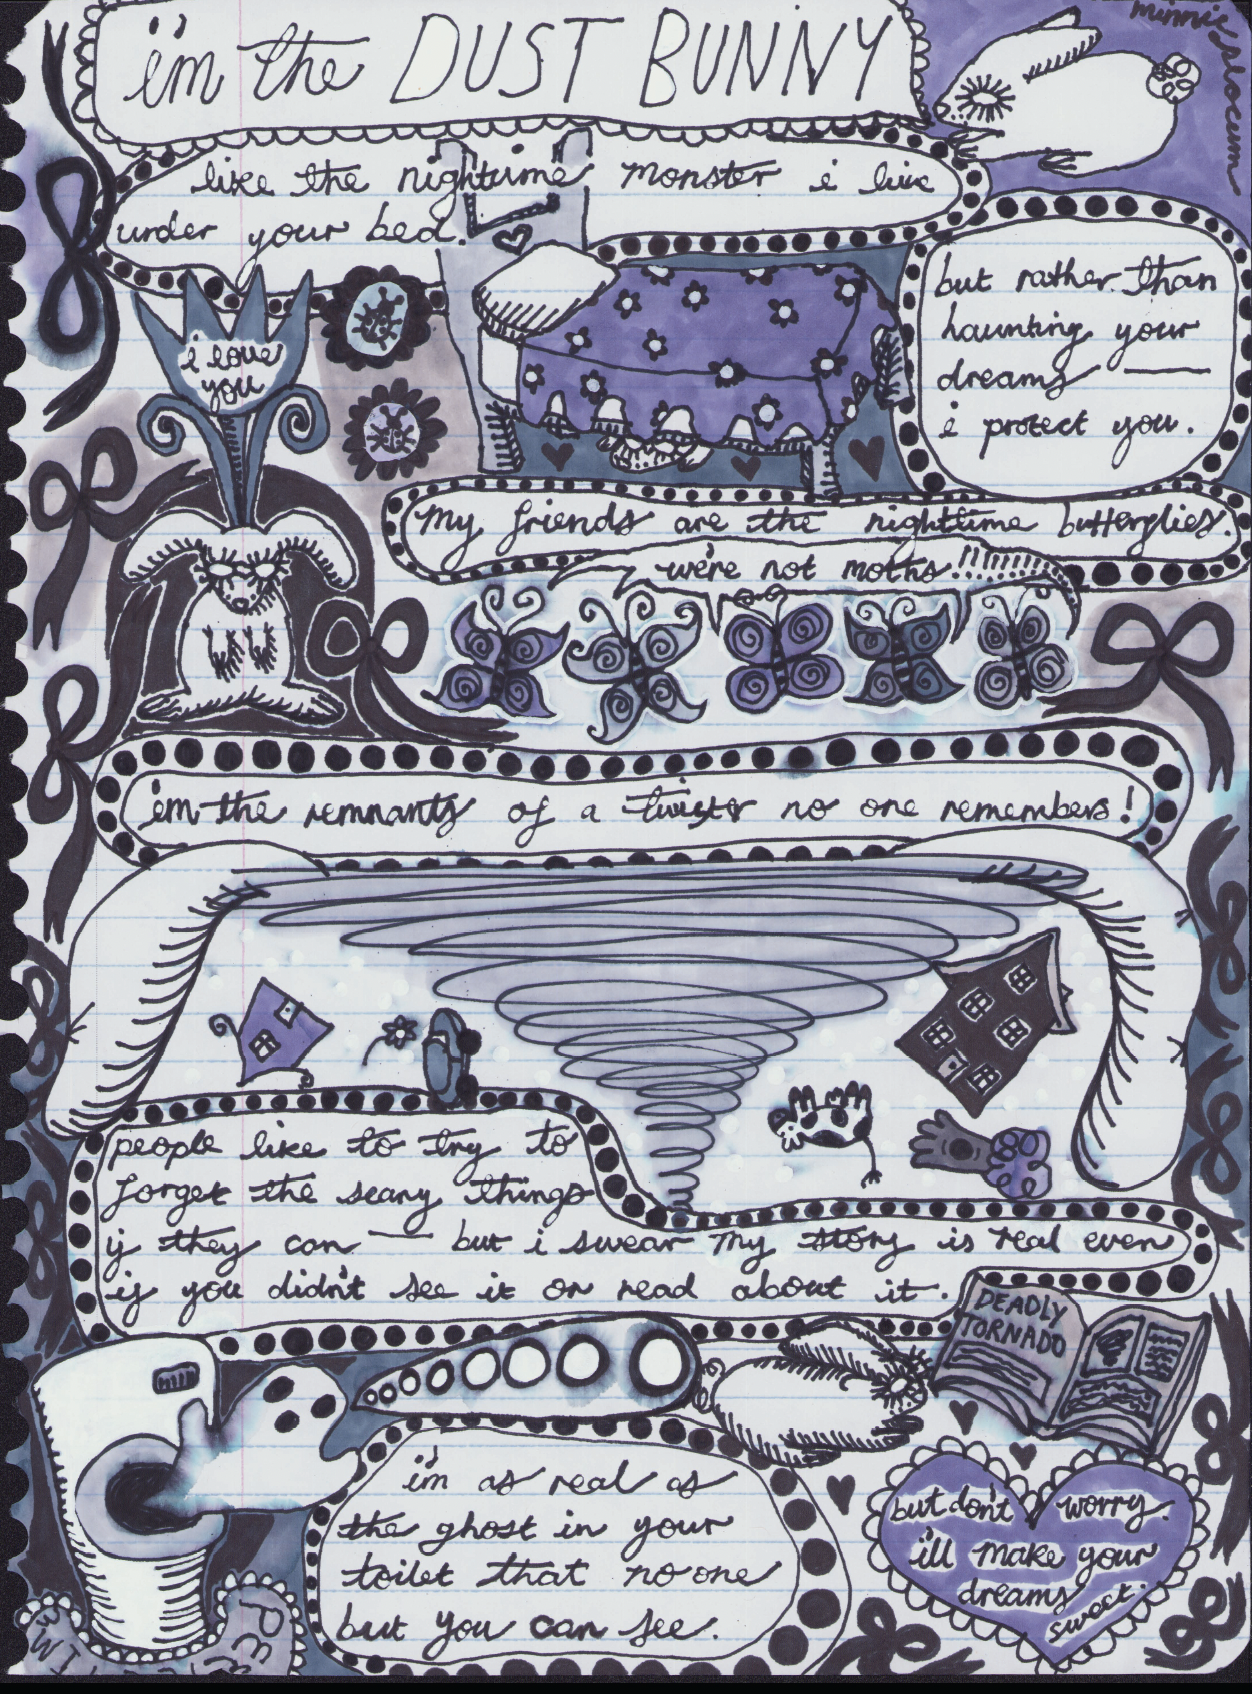 minnie slocum
i'm the DUST BUNNY
like the nightime monster i live
under your bed.
but rather than
haunting your
dreams —
i protect you.
i love
you
my friends are the nighttime butterflies.
we're not moths!!!!!!!!!!!!
i'm the remnants of a twister no one remembers!
people like to try to
forget the scary things
if they can — but i swear my story is real even
if you didn't see it or read about it.
DEADLY
TORNADO
i'm as real as
the ghost in your
toilet that no one
but you can see.
but don't worry.
i'll make your
dreams
sweet.